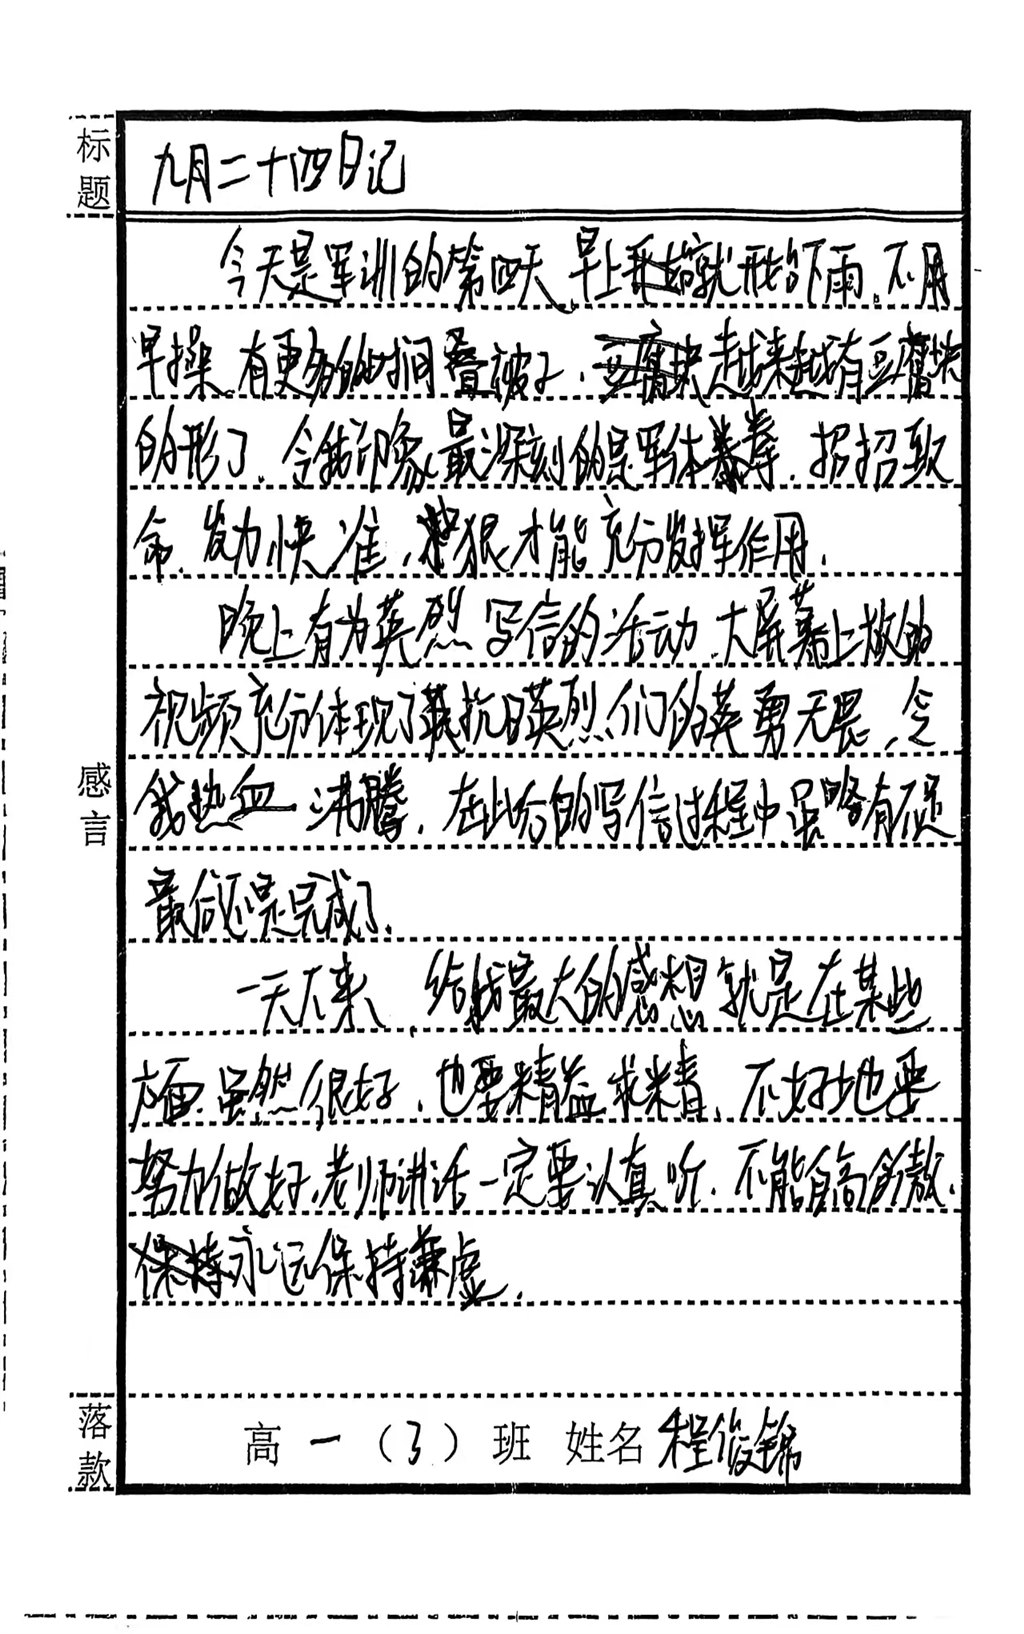 标题
九月二十四日记
今天是军训的第四天，早上就开始下雨，不用
早操，有更多的时间叠被子，越来越有豆腐块
的形了，令我印象最深刻的是军体拳，招招致
命，发力快准，狠才能充分发挥作用．
晚上有为英烈写信的活动，大屏幕上放的
视频充分体现了抗日英烈们的英勇无畏，令
我热血沸腾，在此后的写信过程中虽略有不足
最后还是完成了．
一天下来，给我最大的感想就是在某些
方面虽然很好，也要精益求精，不好地要
努力做好，老师讲话一定要认真听，不能自高自傲，
永远保持谦虚．
感言
落款
高一（3）班 姓名 程俊锦